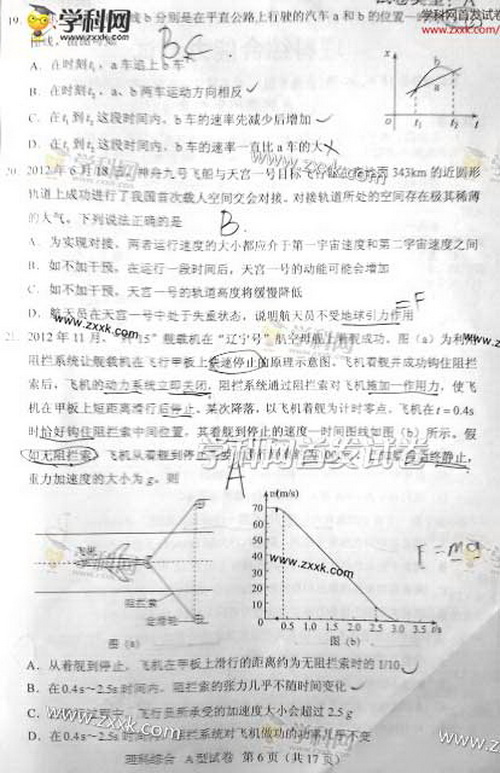 学科网
www.zxxk.com
学科网首发试卷
www.zxxk.com
19.
线 b 分别是在平直公路上行驶的汽车 a 和 b 的位置一
BC
A．在时刻t₁，a 车追上 b 车
B．在时刻t₂，a、b 两车运动方向相反
C．在t₁到t₂这段时间内，b 车的速率先减少后增加
D．在t₁到t₂这段时间内，b 车的速率一直比 a 车的大
x
b
a
O t₁ t₂ t
20. 2012 年 6 月 18 日，神舟九号飞船与天宫一号目标飞行器在离地面 343km 的近圆形
轨道上成功进行了我国首次载人空间交会对接。对接轨道所处的空间存在极其稀薄
的大气。下列说法正确的是
B.
A．为实现对接，两者运行速度的大小都应介于第一宇宙速度和第二宇宙速度之间
B．如不加干预，在运行一段时间后，天宫一号的动能可能会增加
C．如不加干预，天宫一号的轨道高度将缓慢降低
D．航天员在天宫一号中处于失重状态，说明航天员不受地球引力作用
=F
21. 2012 年 11 月，“歼 15”舰载机在“辽宁号”航空母舰上着舰成功。图（a）为利用
阻拦系统让舰载机在飞行甲板上快速停止的原理示意图。飞机着舰并成功钩住阻拦
索后，飞机的动力系统立即关闭，阻拦系统通过阻拦索对飞机施加一作用力，使飞
机在甲板上短距离滑行后停止。某次降落，以飞机着舰为计时零点，飞机在 t = 0.4s
时恰好钩住阻拦索中间位置，其着舰到停止的速度一时间图线如图（b）所示。假
如无阻拦索，飞机从着舰到停止
静止，
重力加速度的大小为 g。则
A
学科网首发试卷
飞机
阻拦索
定滑轮
图（a）
v(m/s)
80
70
60
50
40
30
20
10
0 0.5 1.0 1.5 2.0 2.5 3.0 3.5 t/s
图（b）
F=ma
A．从着舰到停止，飞机在甲板上滑行的距离约为无阻拦索时的 1/10
B．在 0.4s～2.5s 时间内，阻拦索的张力几乎不随时间变化
C．在滑行过程中，飞行员所承受的加速度大小会超过 2.5 g
D．在 0.4s～2.5s 时间内，阻拦系统对飞机做功的功率几乎不变
理科综合 A 型试卷 第 6 页（共 17 页）